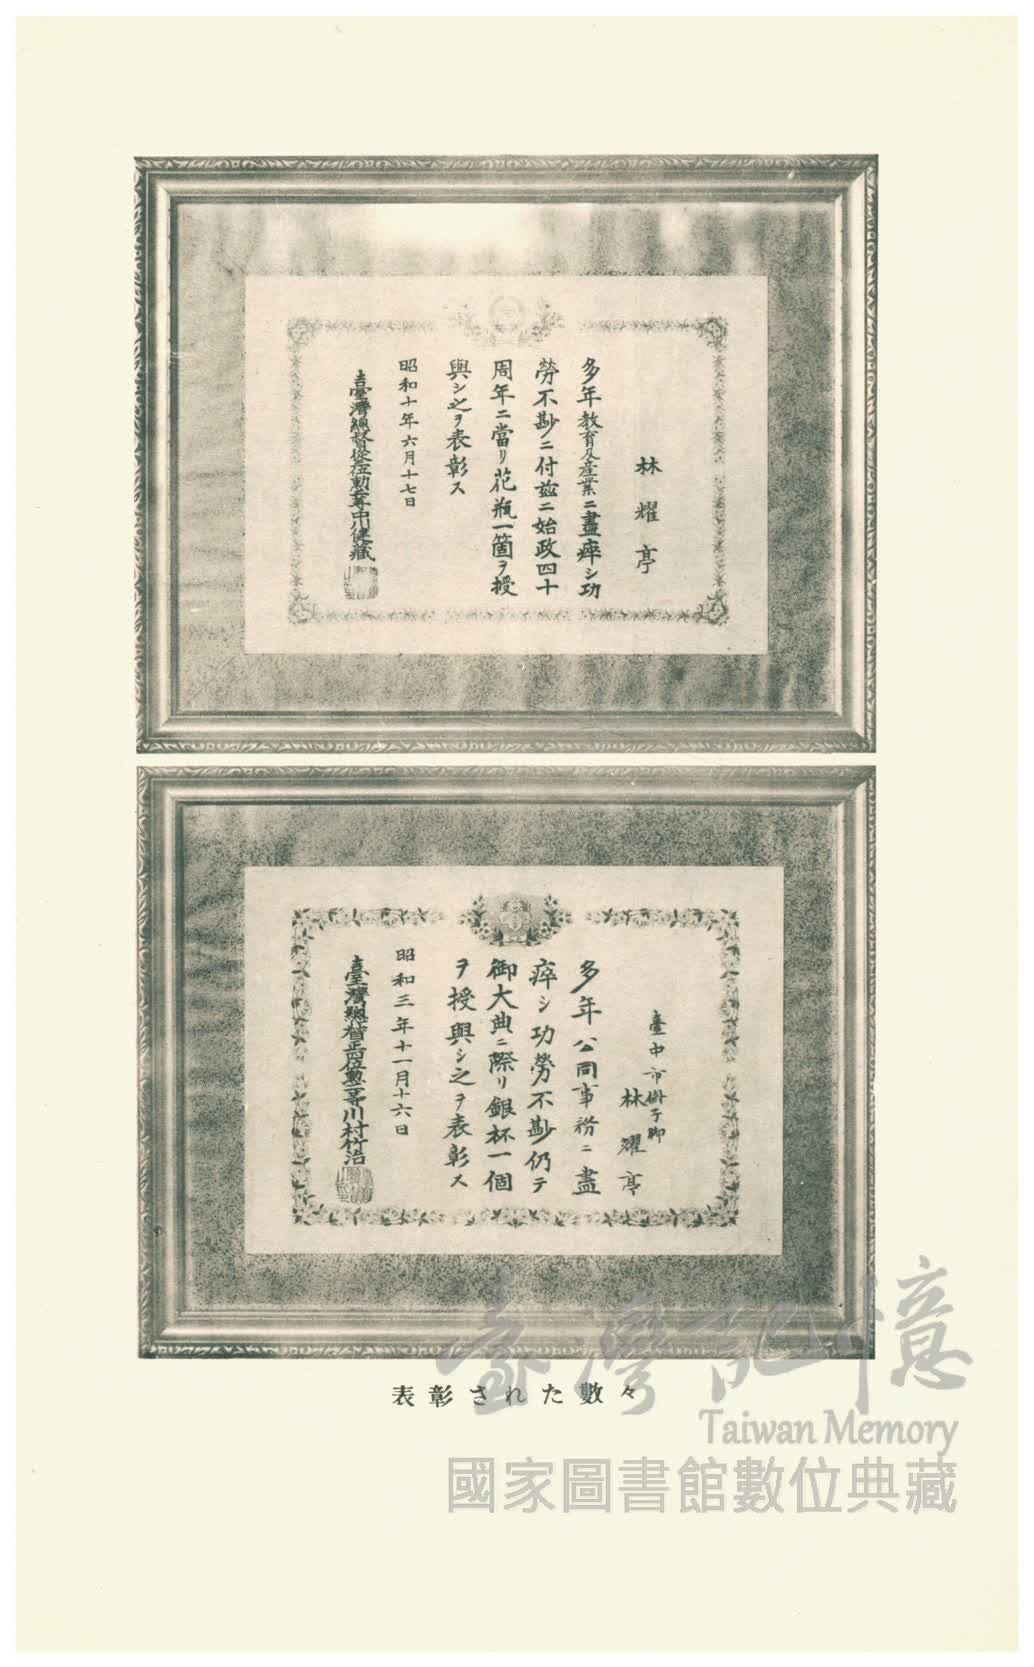 林耀亭
多年教育及産業ニ盡瘁シ功
勞不尠ニ付玆ニ始政四十
周年ニ當リ花瓶一箇ヲ授
與シ之ヲ表彰ス
昭和十年六月十七日
臺灣總督從二位勳一等中川健藏
臺中市樹子脚
林耀亭
多年公同事務ニ盡
瘁シ功勞不尠仍テ
御大典ニ際リ銀杯一個
ヲ授與シ之ヲ表彰ス
昭和三年十一月十六日
臺灣總督正四位勳一等川村竹治
表彰された數々
臺灣記憶
Taiwan Memory
國家圖書館數位典藏